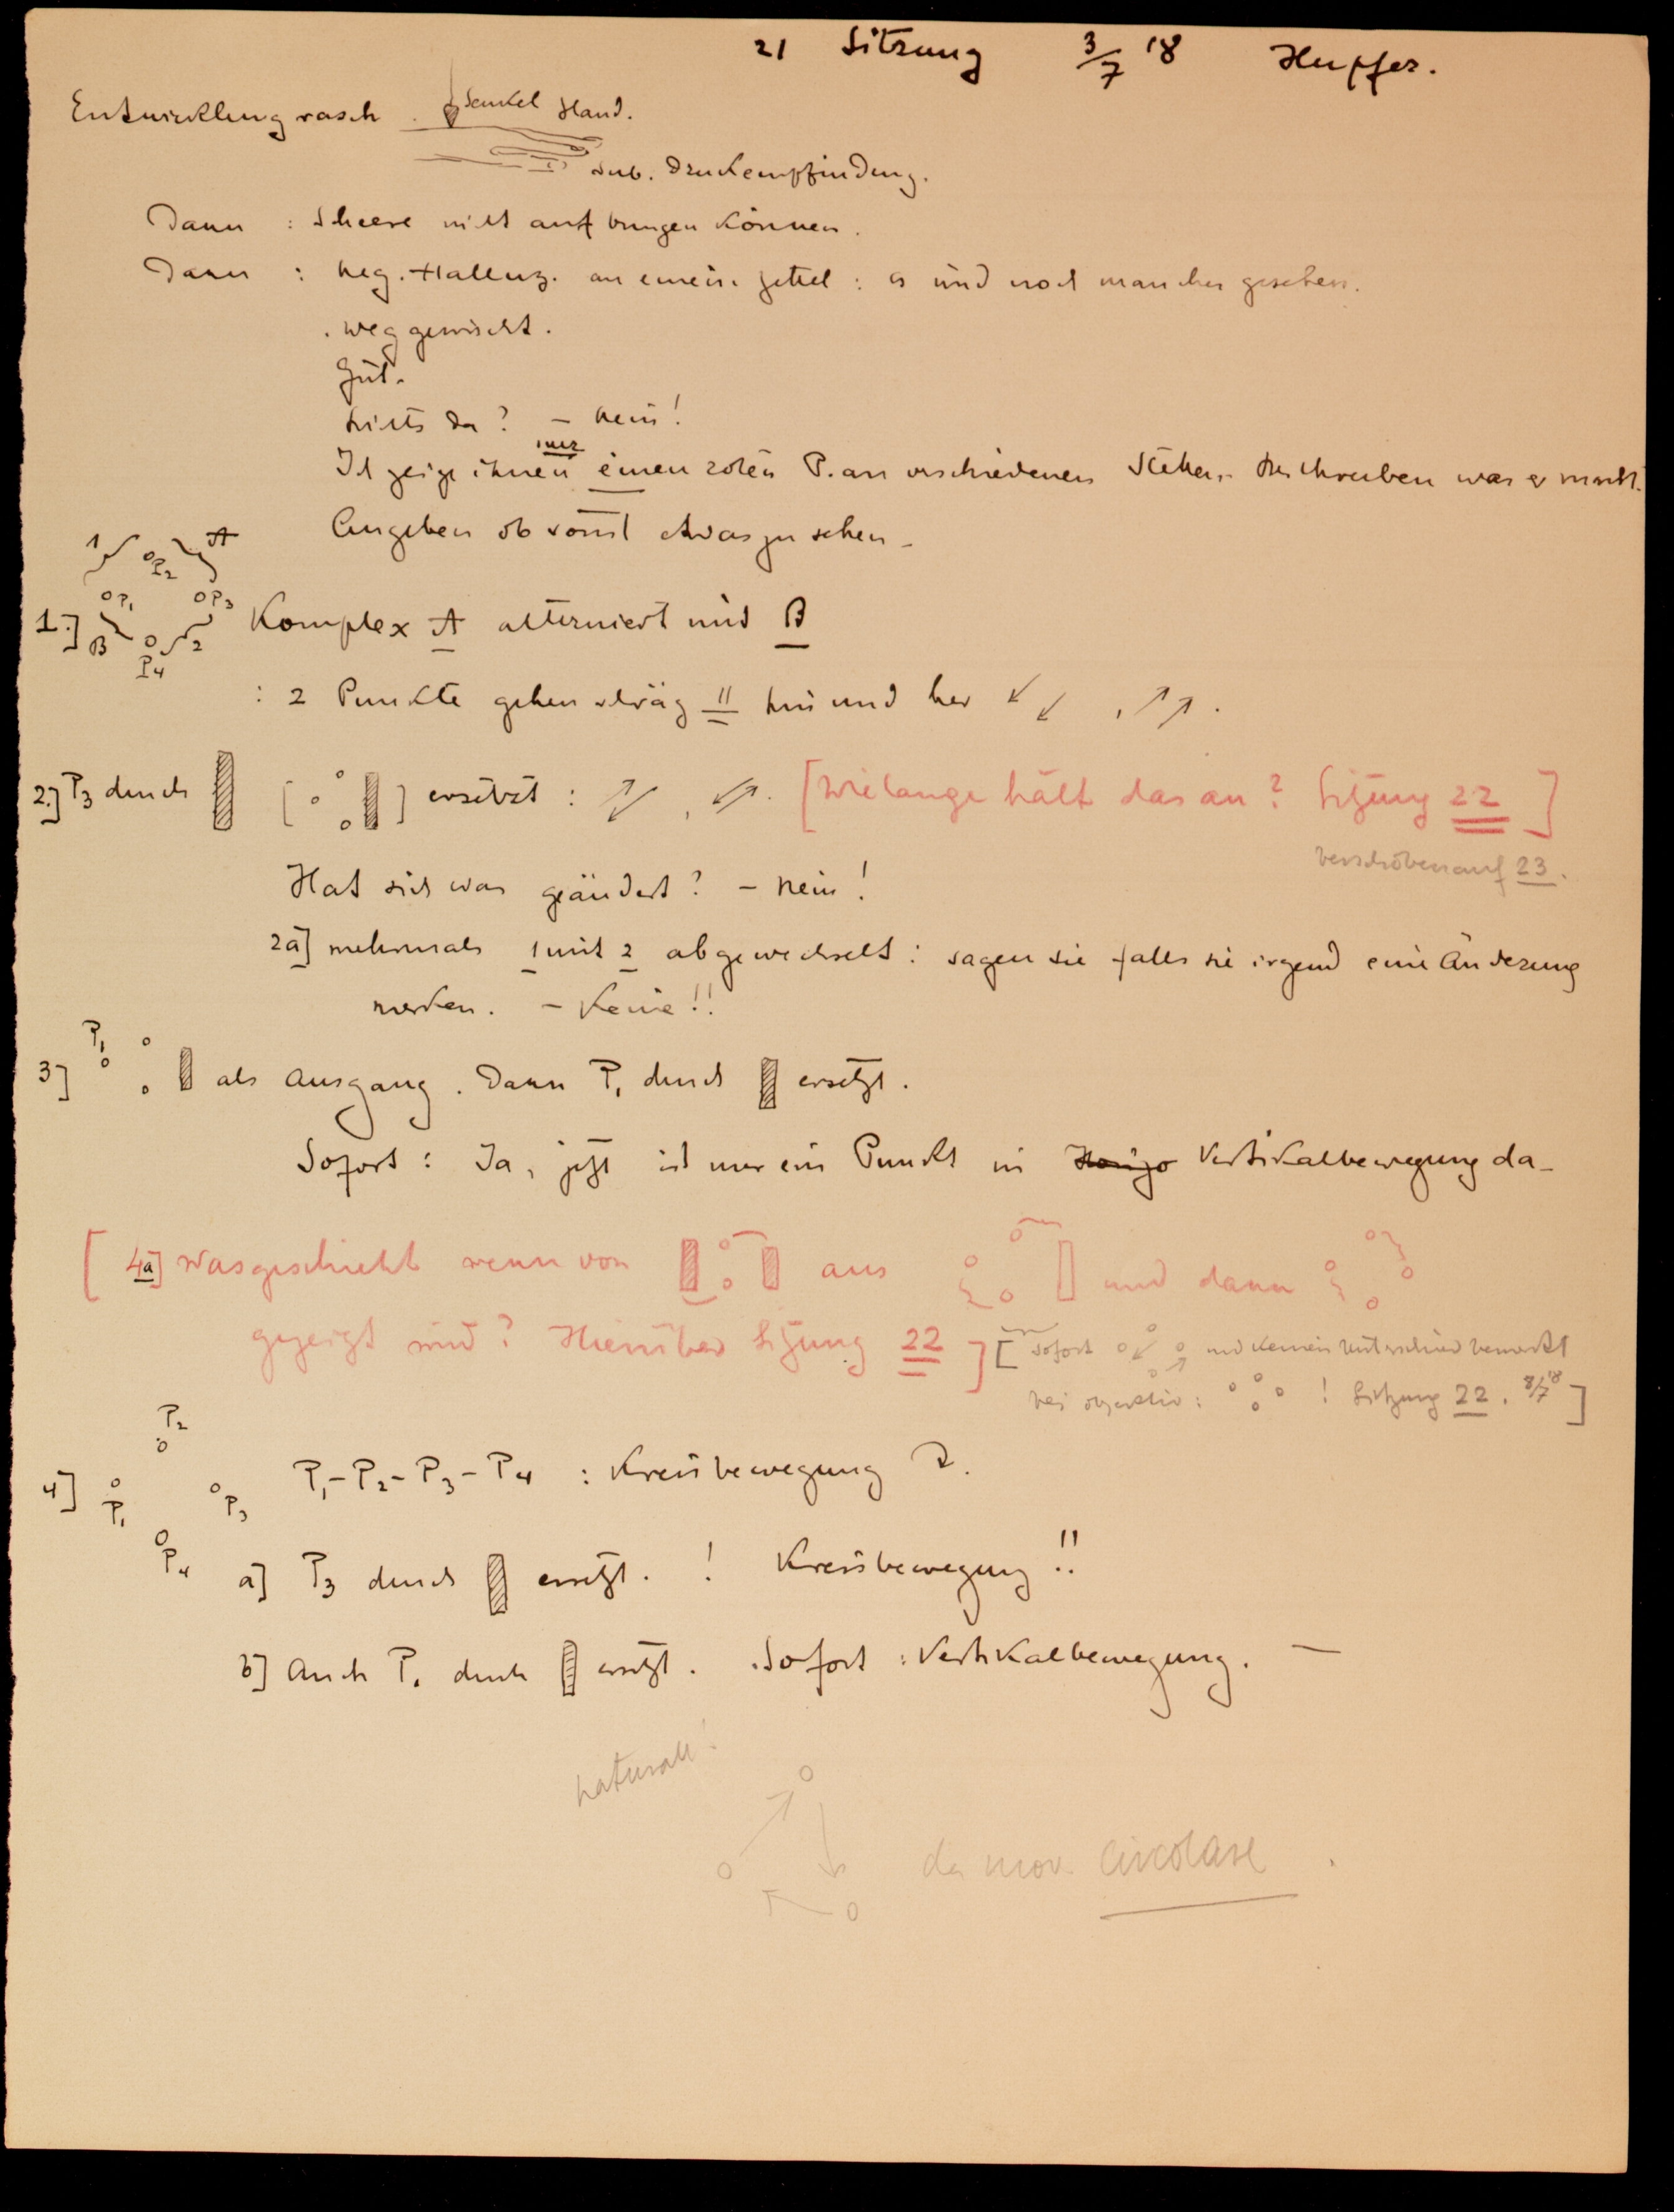 21 Sitzung 3/7 18 Hupfer.
Entwicklung rasch. Senkel Hand.
sub. Druckempfindung.
Dann : Scheere nicht aufbringen können.
Dann : neg. Halluz. an einem Zettel : es wird noch manches gesehen.
weggewischt.
Gut.
Nichts da? – Nein!
Ich zeige ihnen nur einen roten P. an verschiedenen Stellen. Beschreiben was er macht.
Angeben ob sonst etwas zu sehen –
1 P2 A
P1 P3
1.] B 2 Komplex A alterniert mit B
P4
: 2 Punkte gehen schräg || hin und her ↙ ↙ , ↗ ↗ .
2.] P3 durch [ ] ersetzt : [Wielange hält das an? Sitzung 22]
verschoben auf 23.
Hat sich was geändert? – Nein!
2a] mehrmals 1 mit 2 abgewechselt : sagen sie falls sie irgend eine Änderung
merken. – Keine!!
P1
3] als Ausgang. Dann P1 durch ersetzt.
Sofort : Ja, jetzt ist nur ein Punkt in Vertikalbewegung da –
[4a] Was geschieht wenn von aus und dann
gezeigt wird? Hierüber Sitzung 22] [Sofort und keinen Unterschied bemerkt
bei objektiv : ! Sitzung 22. 8/7 18]
P2
4] P1 P3 P1 – P2 – P3 – P4 : Kreisbewegung
P4 a] P3 durch ersetzt. ! Kreisbewegung!!
b] Auch P1 durch ersetzt. Sofort : Vertikalbewegung. —
da mov. circolare